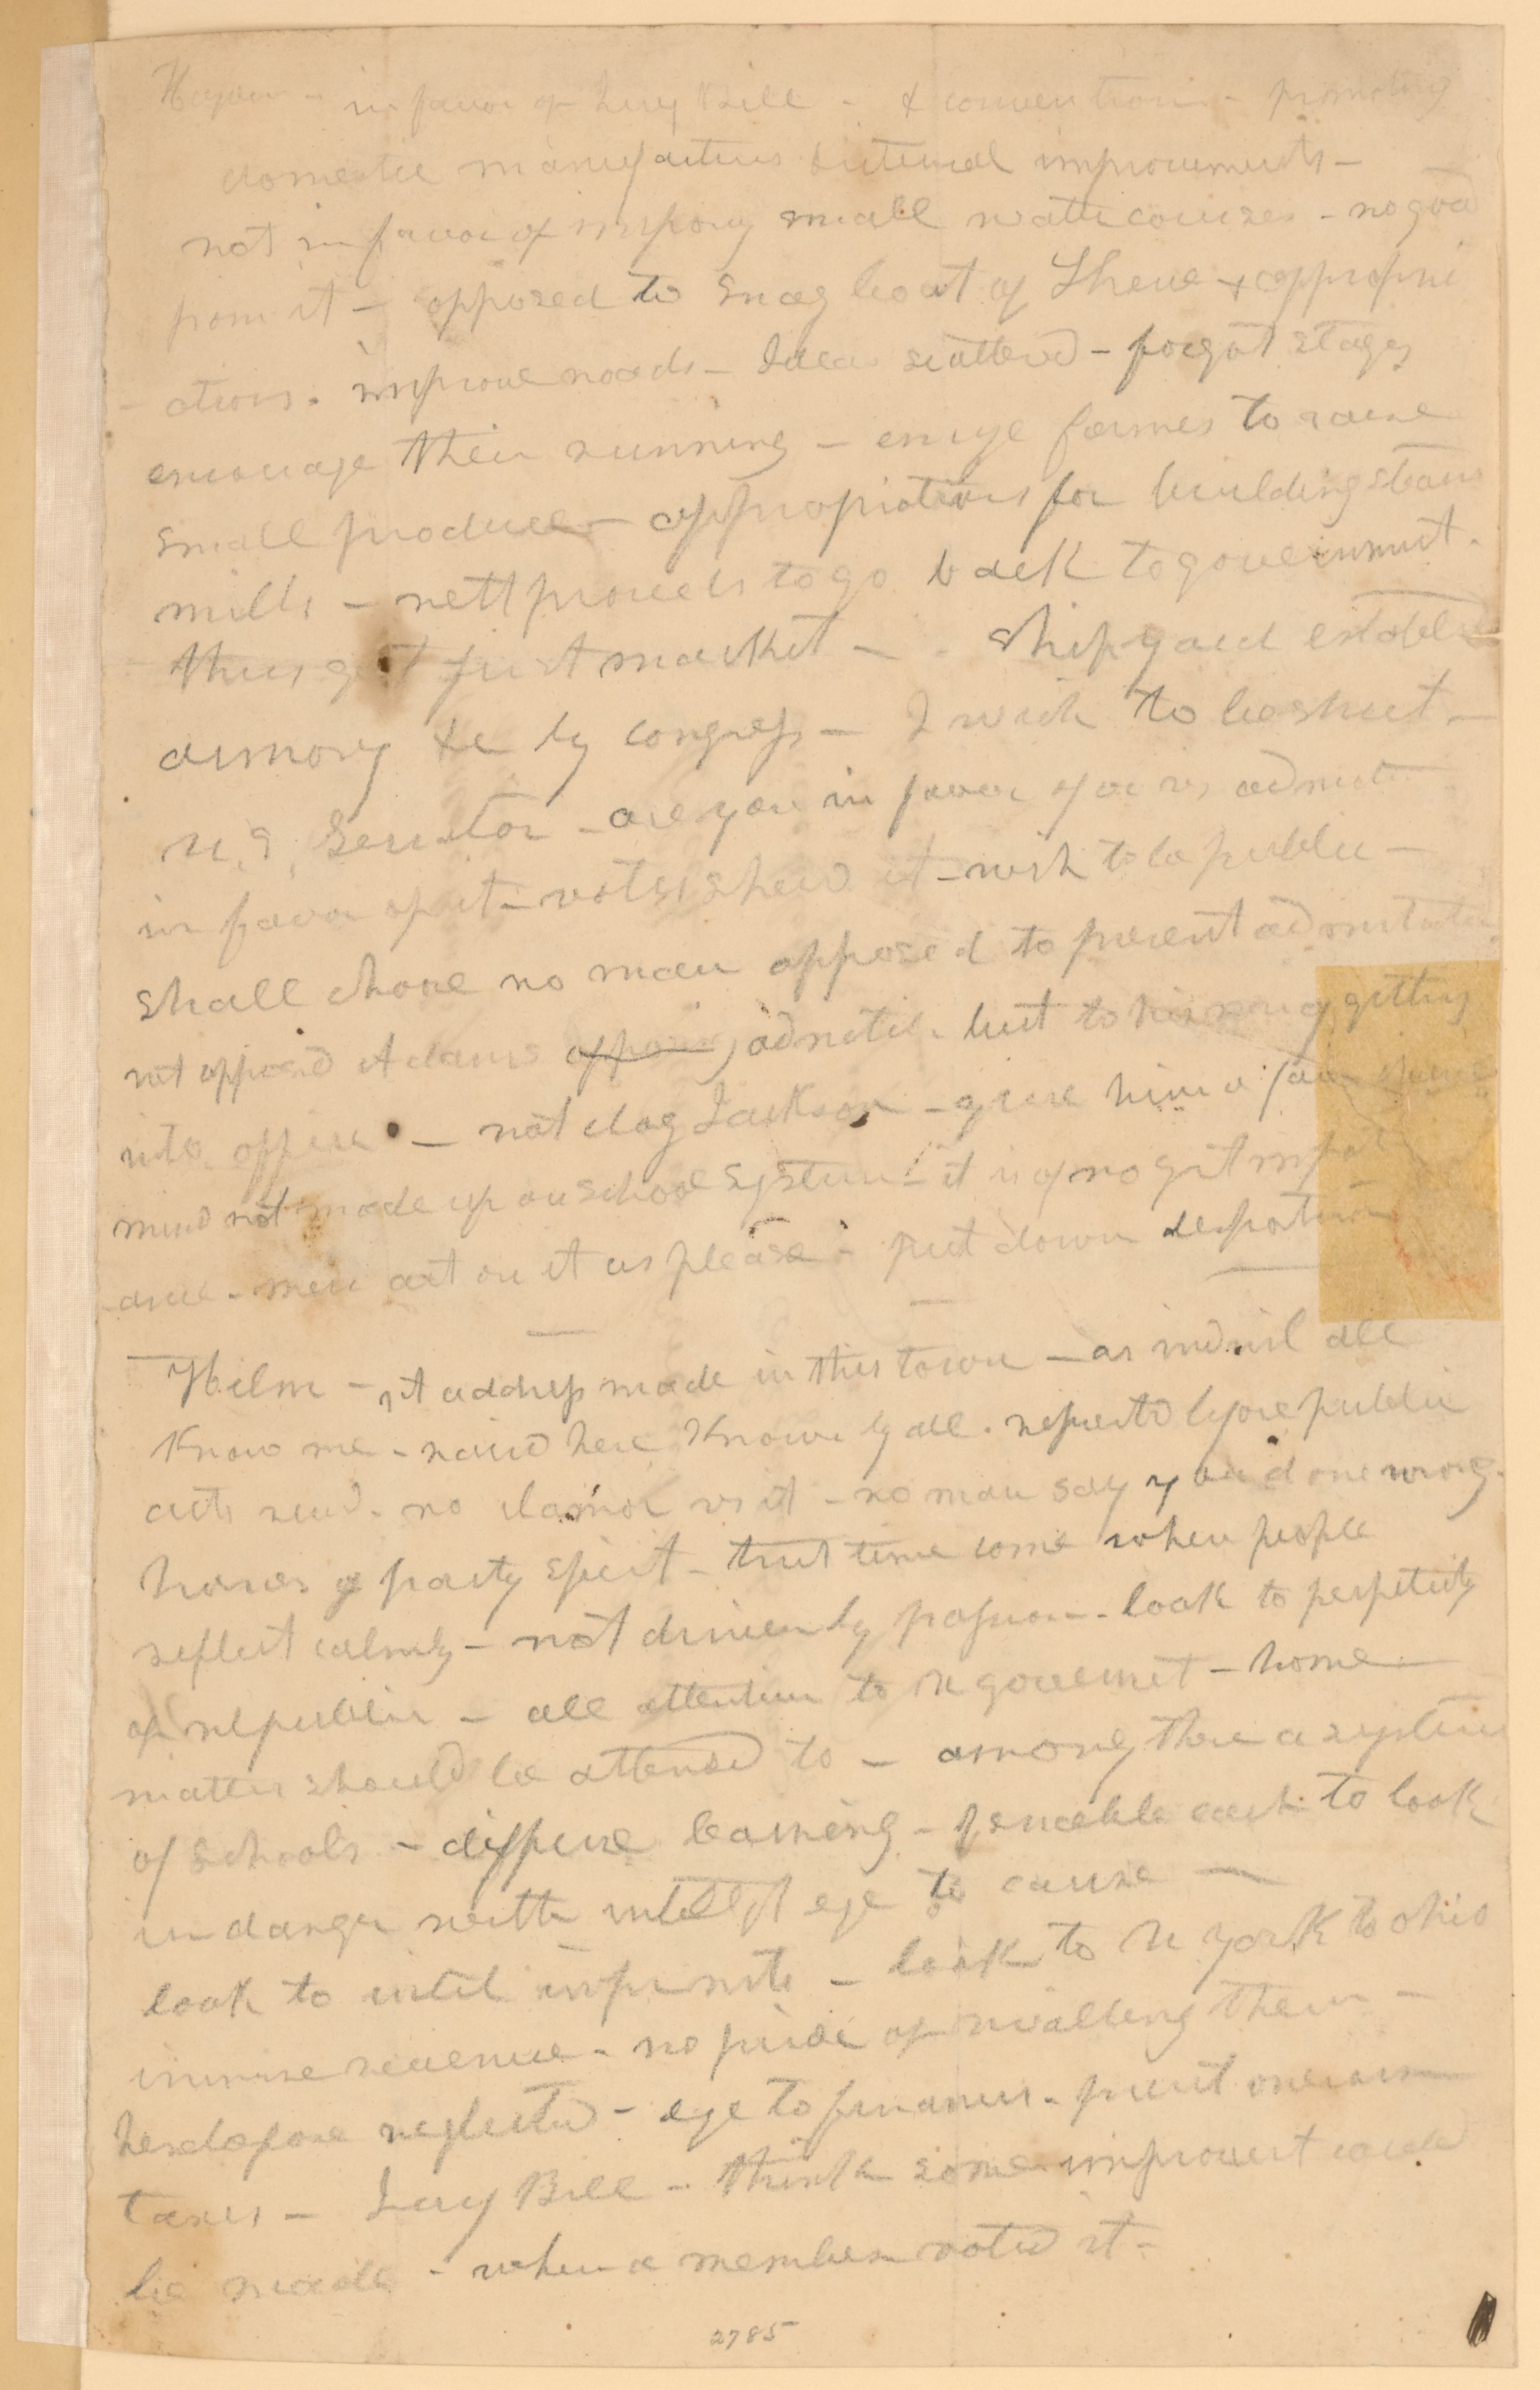 in favor of Jury Bill - & convention - promoting
domestic manufactures & internal improvements -
not in favor of improvg small watercourses - no good
from it - opposed to snag boat of Shreve & appropri
- ations. improve roads - Ideas scattered - forgot stages
encourage their running - encrge farmers to raise
small produce - appropriations for building steam
mills - nett proceeds to go back to government.
thus get just market - Ship yard establ
armory &c by congress - I wish to be short -
U.S. Senator - are you in favor of or vs admstr
in favor of it - votes shewd it - wish to be public -
shall chose no man opposed to present admstratn
not opposed Adams admstn. but to his way of getting
into office - not clog Jackson - give him a fair chance
mind not made up on school system - it is of no grt import
- ance - men act on it as please - put down despotism
Helm - 1st address made in this town - as indivil all
know me - raised here known by all. repeated before public
acts revd. no clamor vs it - no man say you done wrong.
horrors of party spirit - trust time come when people
reflect calmly - not driven by passion - look to perpetuity
of republic - all attention to U governmt - home
matters should be attended to - among these a system
of schools - diffuse learning - & enable each to look
in danger with intellgt eye to cause -
look to intel improvmts - look to N York to Ohio
increase revenue - no pride of rivalling them -
heretofore neglected - eye to finances - prevent onerous
taxes - Jury Bill - think some improvemt could
be made - when a member voted it -
2785